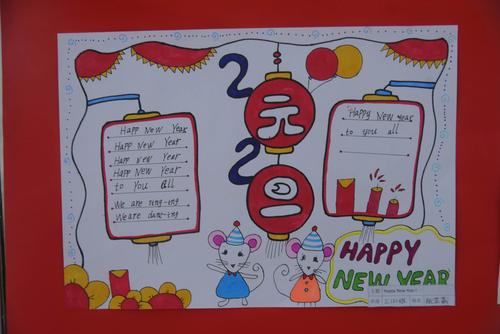 2
元
2
旦
Happy New Year
Happy New Year
Happy New Year
Happy New Year
to You all
We are sing-ing
We are danc-ing
Happy New Year
to you all
HAPPY
NEW YEAR
Happy New Year!